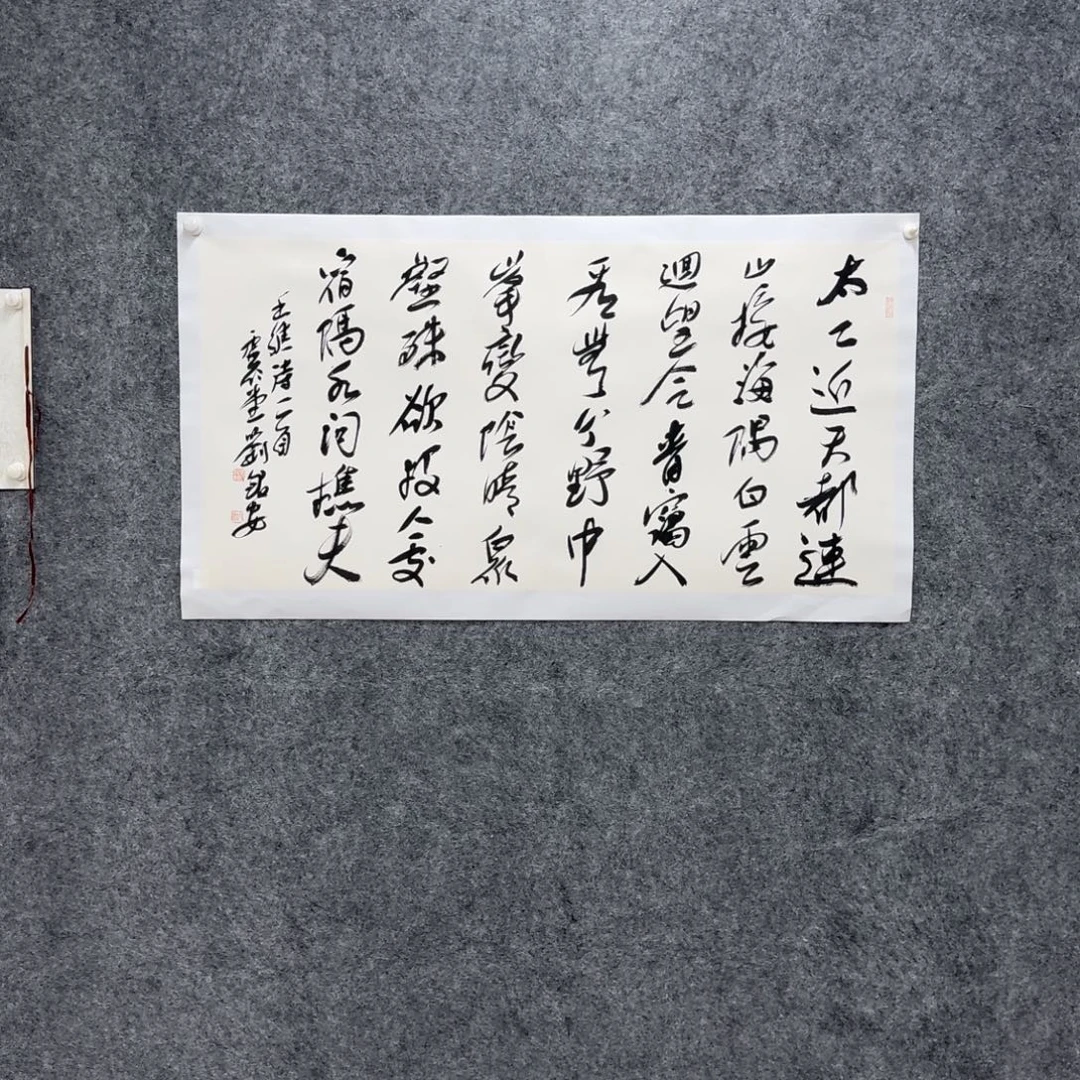 太乙近天都連
山接海隅白雲
迴望合青靄入
看無分野中
峯變陰晴眾
壑殊欲投人處
宿隔水問樵夫
王維詩一首
堂劉安